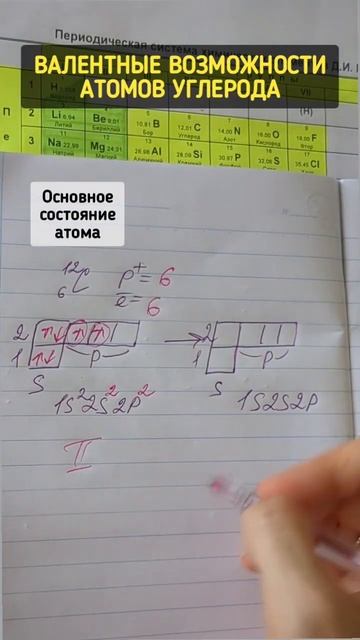 Периодическая система хими
ВАЛЕНТНЫЕ ВОЗМОЖНОСТИ
АТОМОВ УГЛЕРОДА
1 H VII (H)
2 Li 6,94 Be 9,01 10,81 B 12,01 C 14,00 N 16,00 O 18,00 F
Литий Бериллий Бор Углерод Азот Кислород Фтор
11 12 13 14 15 16 17
3 Na 22,99 Mg 24,31 26,98 Al 28,08 Si 30,97 P 32,06 S 35,45 Cl
Натрий Магний
Основное
состояние
атома
12 C p⁺ = 6
6 e = 6
2 ↑↓ ↑ ↑ → 2
1 ↑↓ p 1 p
S S
1S²2S²2P² 1S2S2P
II